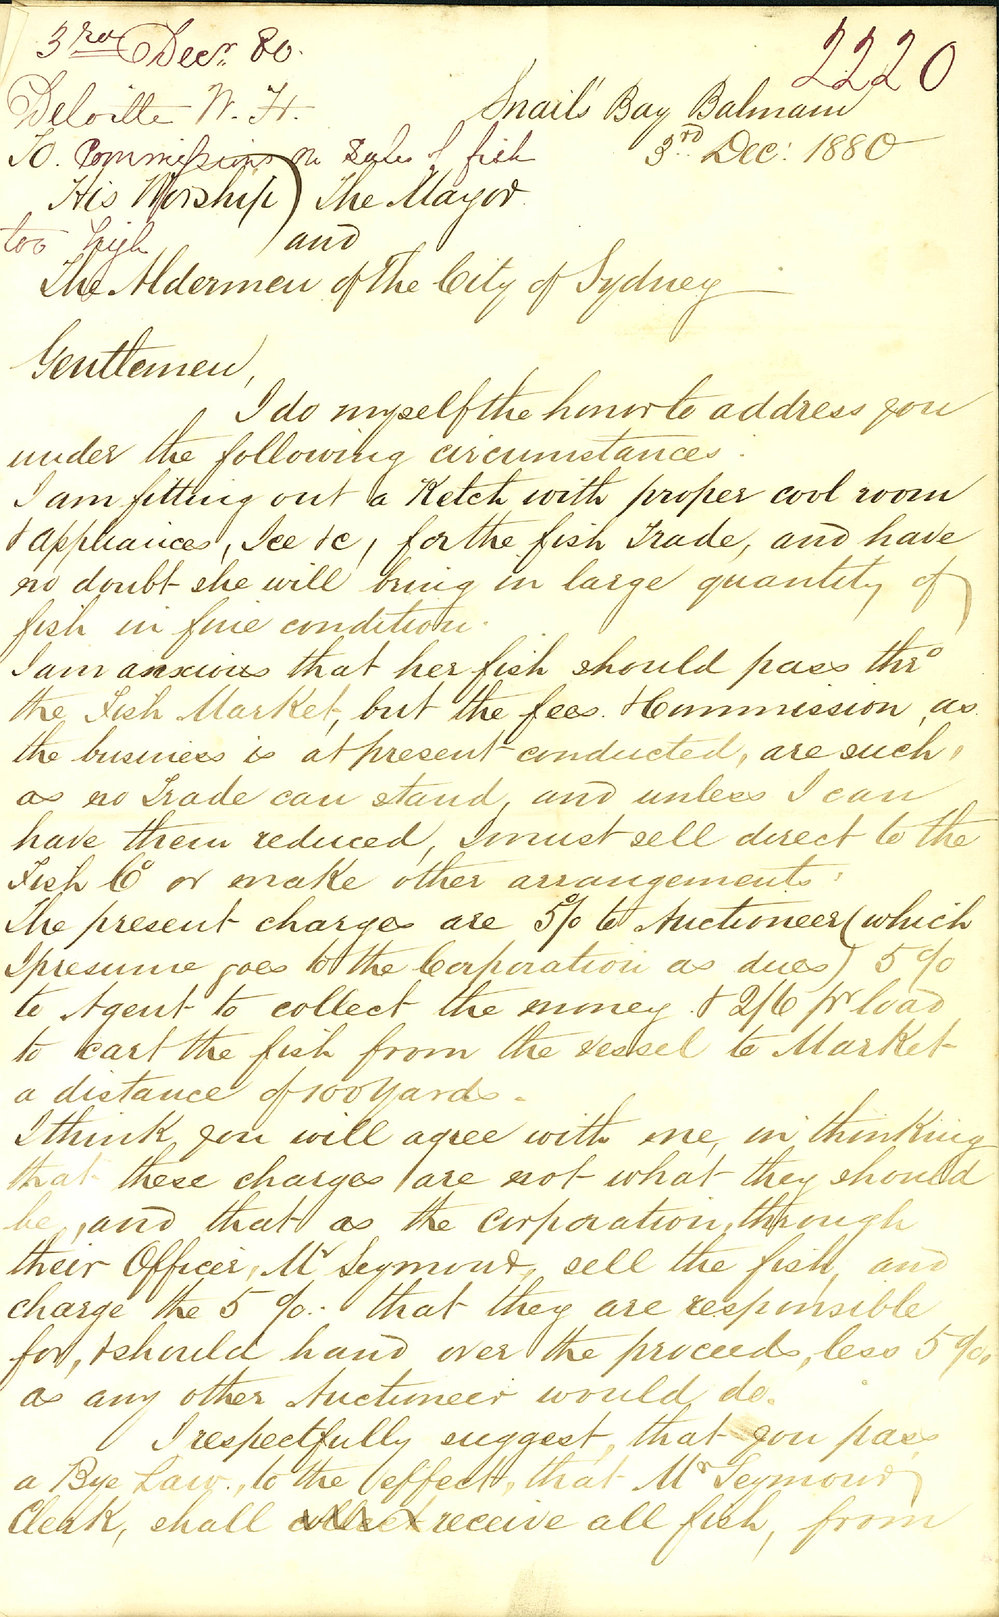 3rd Decr. 80.
2220
Deloitte W. H.
Snail's Bay Balmain
3rd Dec: 1880
To. Commission on Sales of fish
His Worship) The Mayor
too high
and
The Aldermen of The City of Sydney
Gentlemen,
I do myself the honor to address you
under the following circumstances.
I am fitting out a Ketch with proper cool room
& appliances, Ice &c, for the fish Trade, and have
no doubt she will bring in large quantity of
fish in fine condition.
I am anxious that her fish should pass thro
the Fish Market, but the fees & Commission, as
the business is at present conducted, are such,
as no Trade can stand, and unless I can
have them reduced, I must sell direct to the
Fish Co or make other arrangements:
The present charges are 5% to Auctioneer (which
I presume goes to the Corporation as dues) 5%
to Agent to collect the money & 2/6 pr load
to cart the fish from the vessel to Market
a distance of 100 yards.
I think you will agree with me, in thinking
that these charges are not what they should
be, and that as the Corporation, through
their Officer, Mr Seymour, sell the fish, and
charge the 5%. that they are responsible
for, & should hand over the proceeds, less 5%,
as any other Auctioneer would do.
I respectfully suggest, that you pass
a Bye Law, to the effect, that Mr Seymour
Clerk, shall collect receive all fish, from